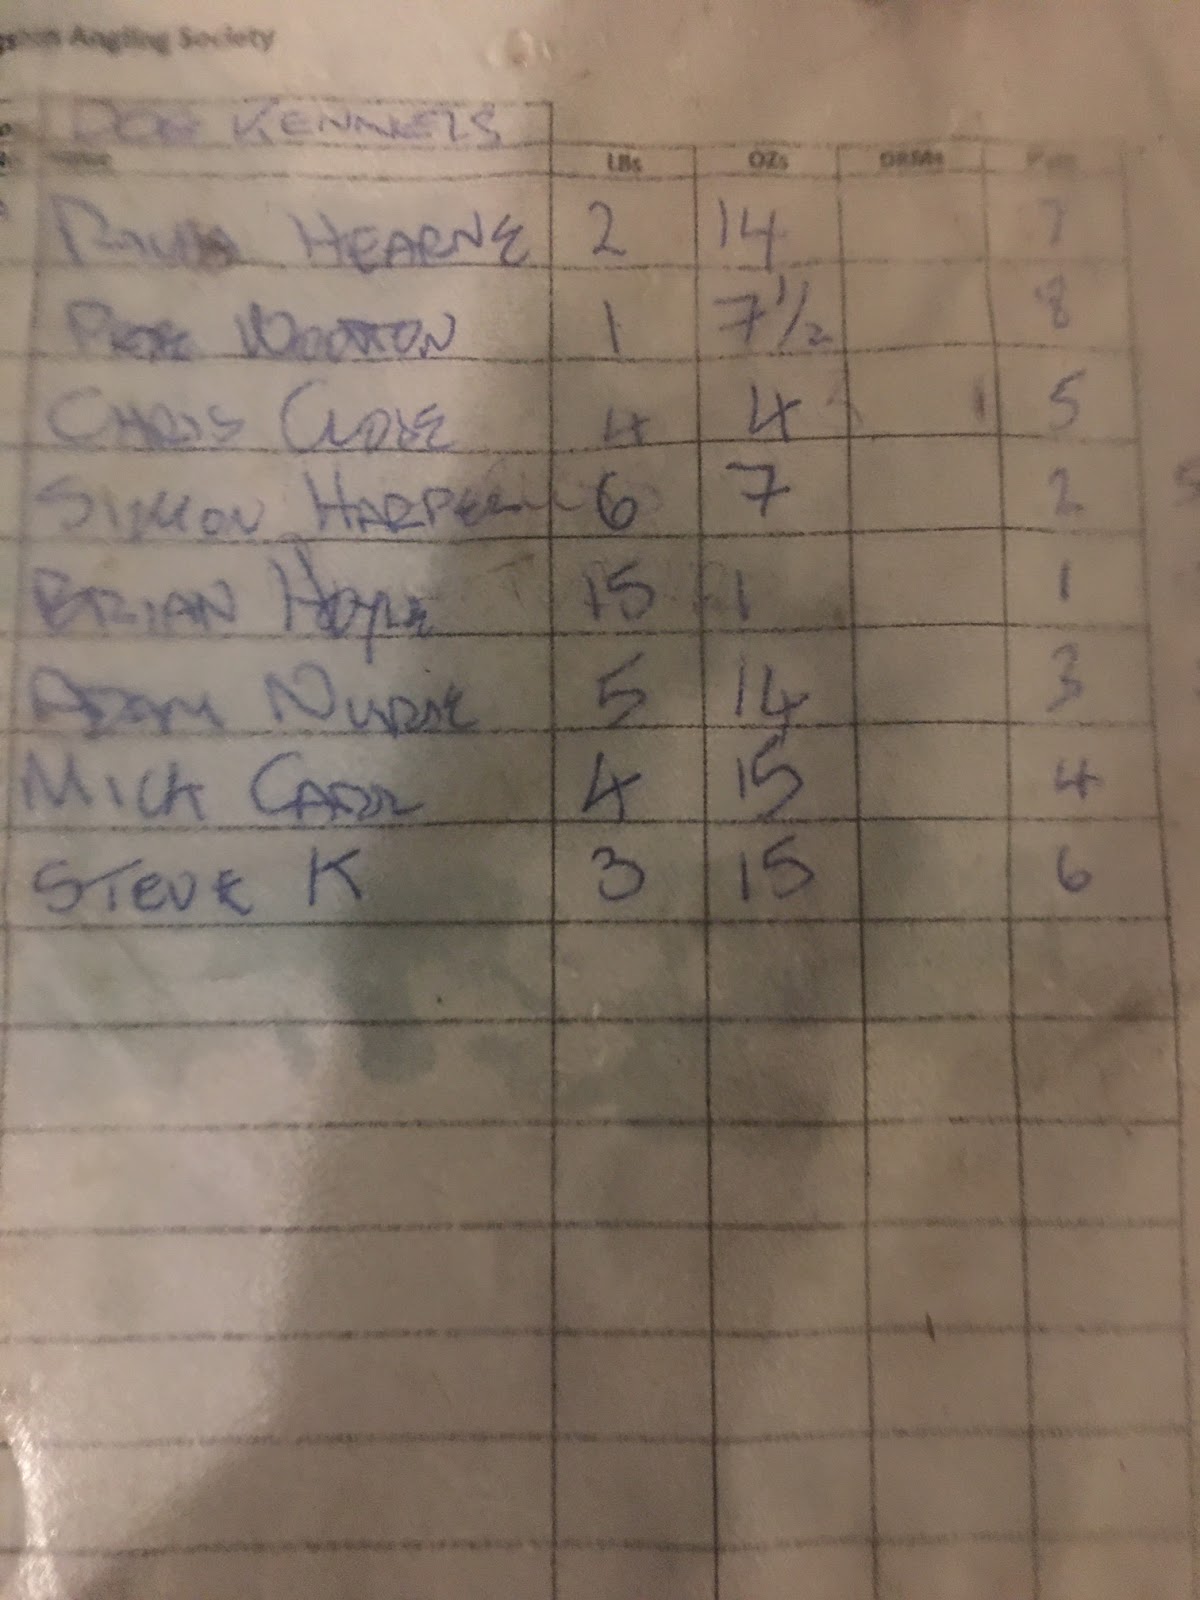 Angling Society
DOG KENNELS
LBs OZs DRMs
HEARNE 2 14 7
PETE WOOTTON 1 7 1/2 8
CHRIS 4 4 5
SIMON HARPER 6 7 2
BRIAN 15 1 1
ADAM NURSE 5 14 3
MICK CARR 4 15 4
STEVE K 3 15 6